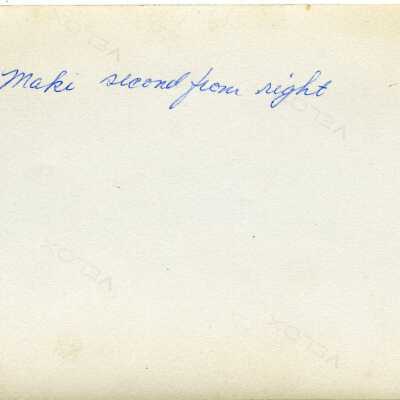 Maki second from right
VELOX
VELOX
VELOX
VELOX